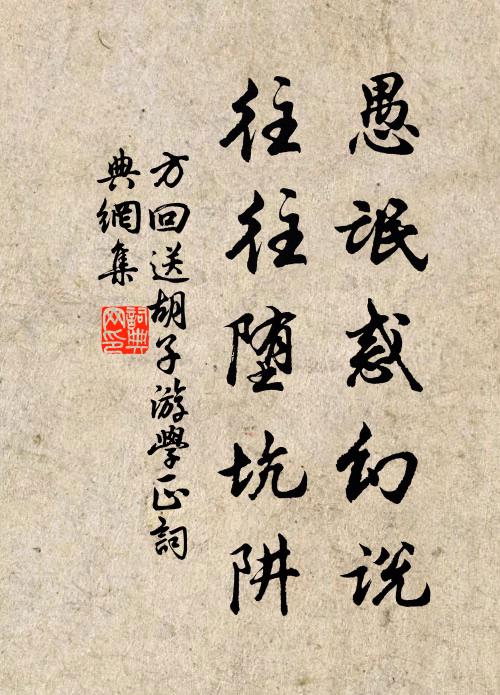 愚氓惑幻说
往往堕坑阱
方回送胡子游學正詞
典網集
詞典網印